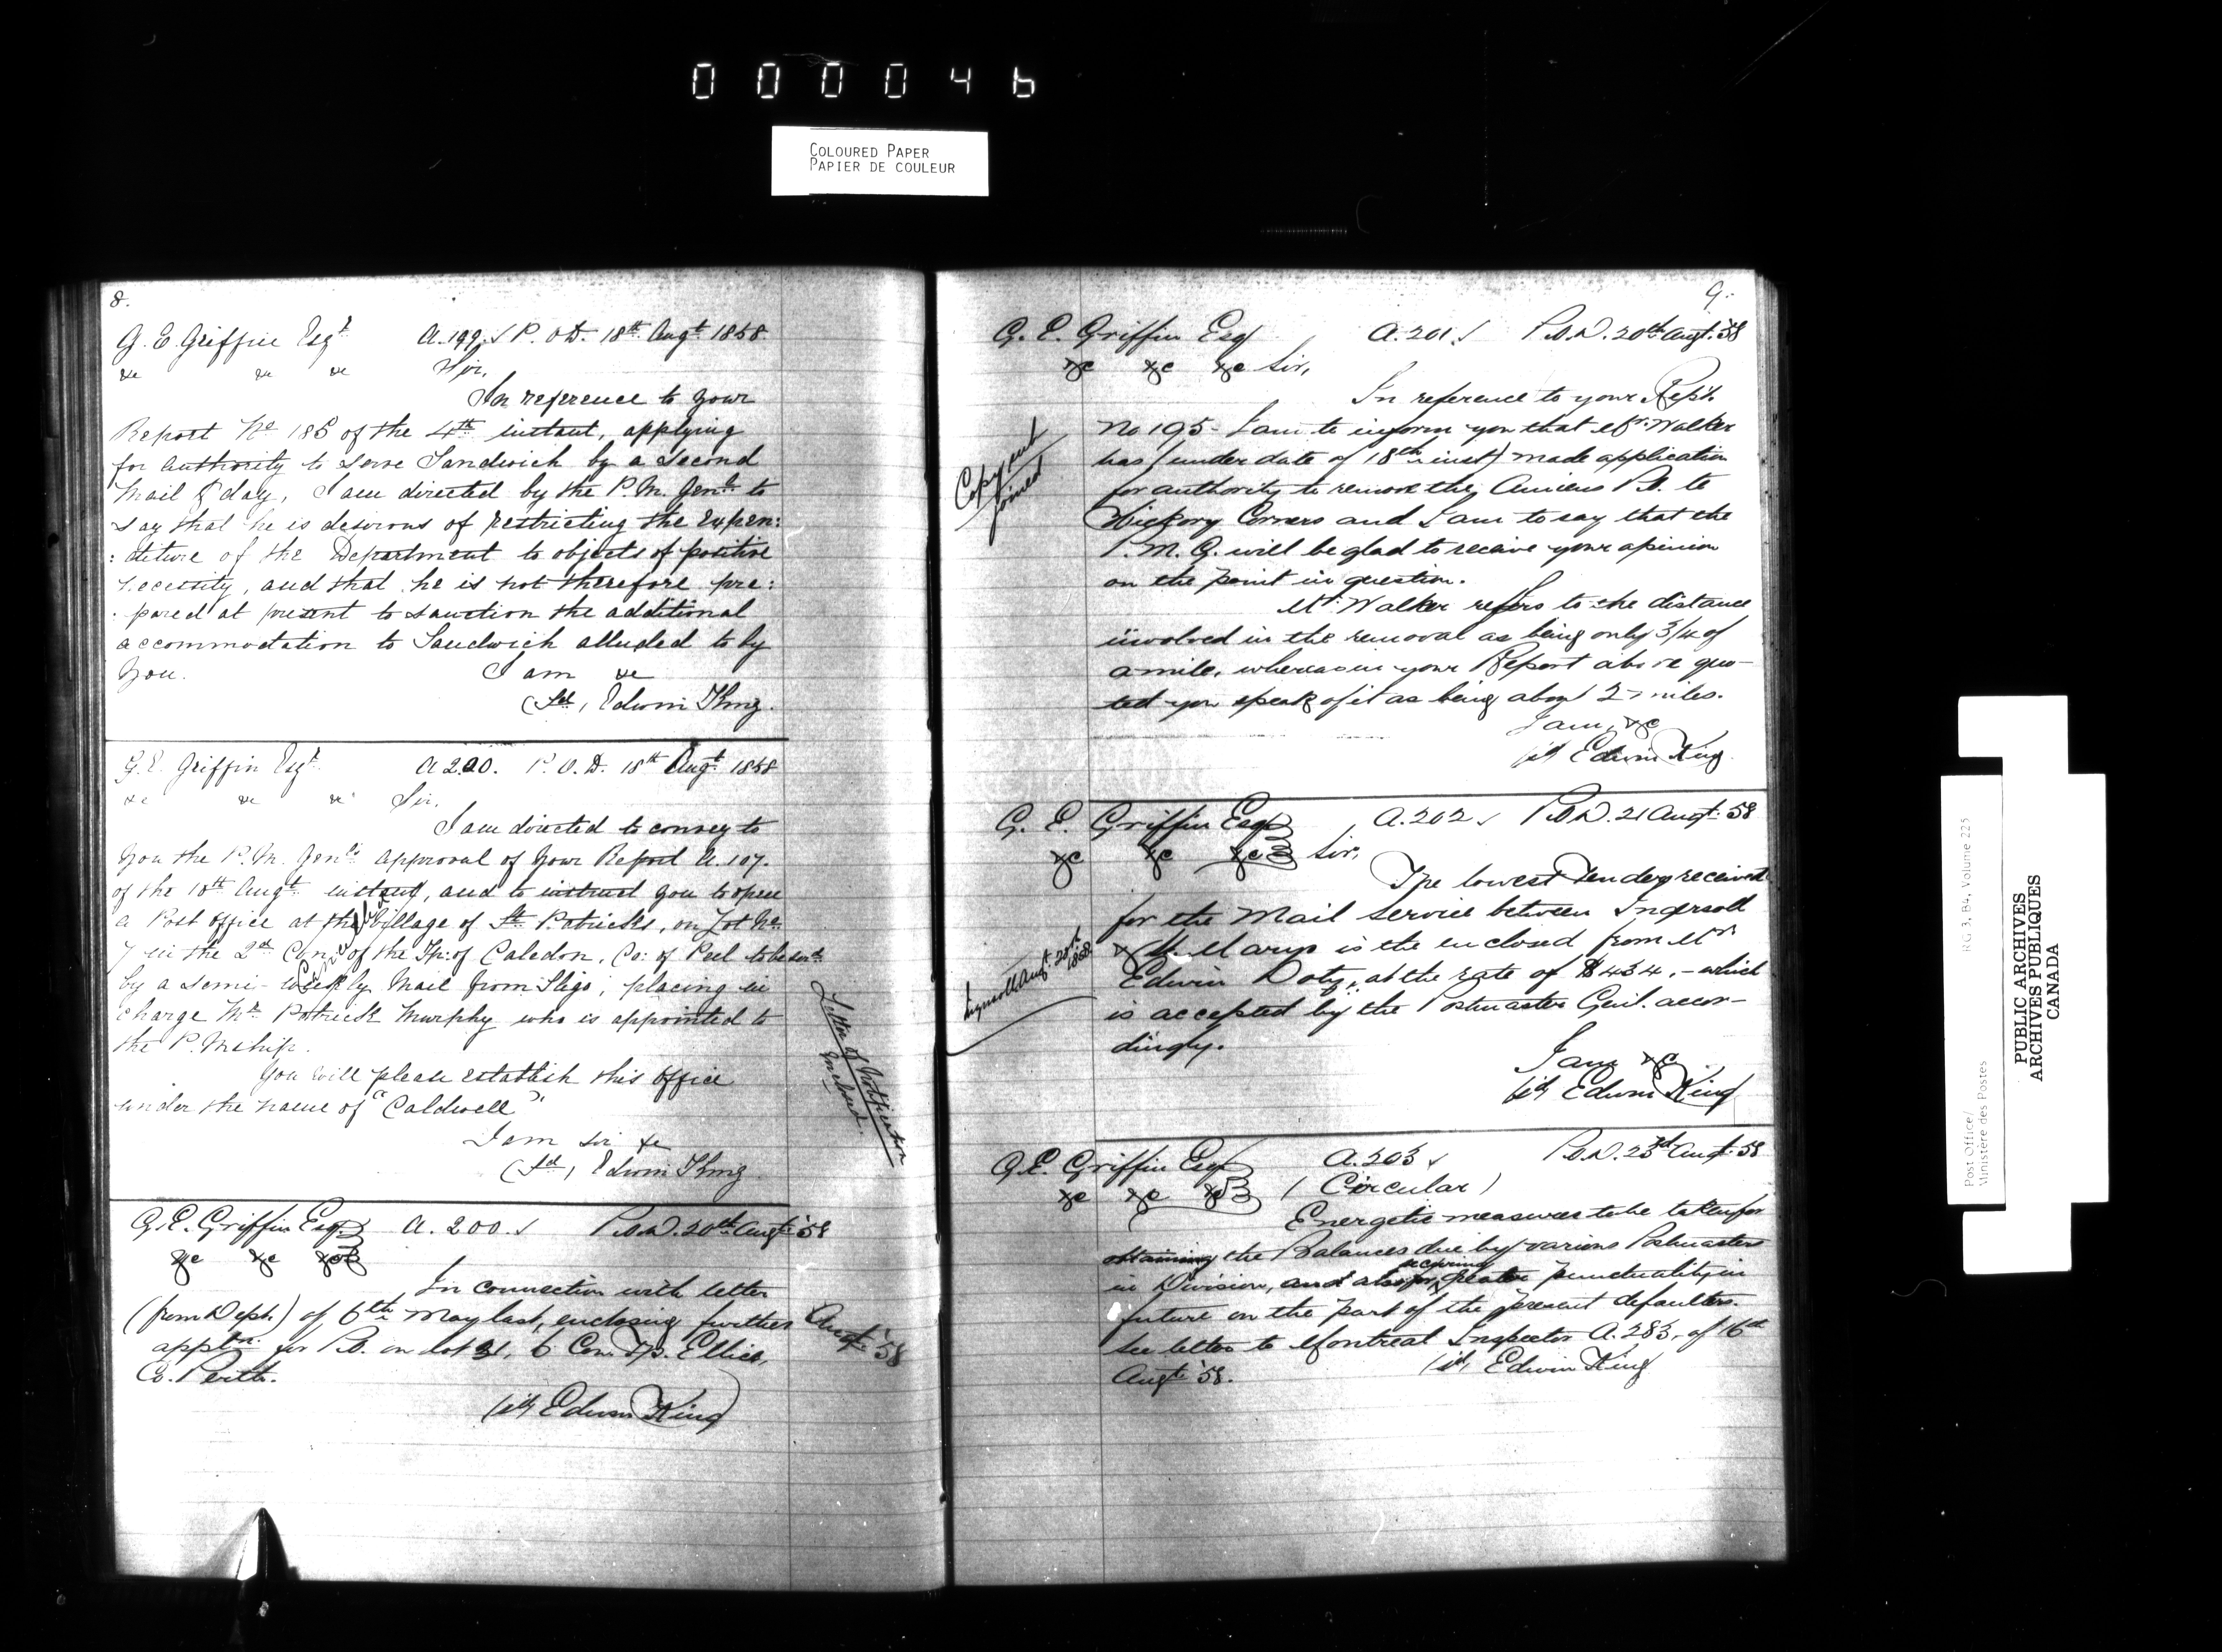 000046
COLOURED PAPER
PAPIER DE COULEUR
8.
G. E. Griffin Esqr A.199. P. O. D. 18th Augt 1858
&c &c &c Sir,
In reference to your
Report No 185 of the 4th instant, applying
for authority to serve Sandwich by a second
Mail P day, I am directed by the P. M. Genl. to
say that he is desirous of restricting the expen:
:diture of the Department to objects of positive
necessity, and that he is not therefore pre:
:pared at present to sanction the additional
accommodation to Sandwich alluded to by
you. I am &c
(Sd, Edwin King.
G. E. Griffin Esqr. A 200. P. O. D. 18th Augt 1858
&c &c &c Sir,
I am directed to convey to
you the P. M. Genls approval of your Report A. 107.
of the 10th Augt instant, and to instruct you to open
a Post Office at the village of St. Patricks, on Lot No.
7 in the 2d Con. of the Tp: of Caledon, Co: of Peel to be servd.
by a semi-weekly Mail from Sligo, placing in
charge Mr. Patrick Murphy who is appointed to
the P. Mship.
You will please establish this office
under the name of "Caldwell"
I am Sir &c
(Sd, Edwin King
Letter of Notification
inclosed.
G. E. Griffin Esq. A. 200. P.O.D. 20th Augt '58
&c &c &c
In connection with letter
(from Dept.) of 6th May last, enclosing further
appltn. for P.O. on lot 31, 6 Con. Tp. Ellice,
Co. Perth.
Augt. '58
(sd, Edwin King)
9.
G. E. Griffin Esq A. 201 P.O.D. 20th Augt. '58
&c &c &c Sir,
In reference to your Rept.
No 195 - I am to inform you that Mr. Walker
has (under date of 18th inst) made application
for authority to remove the Amiens P.O. to
Hickory Corners and I am to say that the
P. M. G. will be glad to receive your opinion
on the point in question.
Mr. Walker refers to the distance
involved in the removal as being only 3/4 of
a mile, whereas in your Report above quo-
ted you speak of it as being about 2 miles.
I am, &c
(sd, Edwin King.
G. E. Griffin Esq A. 202 P.O.D. 21 Augt. '58
&c &c &c Sir,
The lowest Tender received
for the Mail Service between Ingersoll
& St. Marys is the enclosed from Mr.
Edwin Doty, at the rate of $434,- which
is accepted by the Postmaster Genl. accor-
dingly.
I am &c
(sd, Edwin King
Ingersoll Augt. 20th
1858
G. E. Griffin Esq A. 203 P.O.D. 23rd Augt. '58
&c &c &c (Circular)
Energetic measures to be taken for
obtaining the Balances due by various Postmasters
securing
in Division, and also for greater punctuality in
future on the part of the present defaulters.
See letter to Montreal Inspector A. 283, of 16th
Augt '58. (sd, Edwin King
Post Office/
Ministère des Postes
RG 3, B4, Volume 225
PUBLIC ARCHIVES
ARCHIVES PUBLIQUES
CANADA